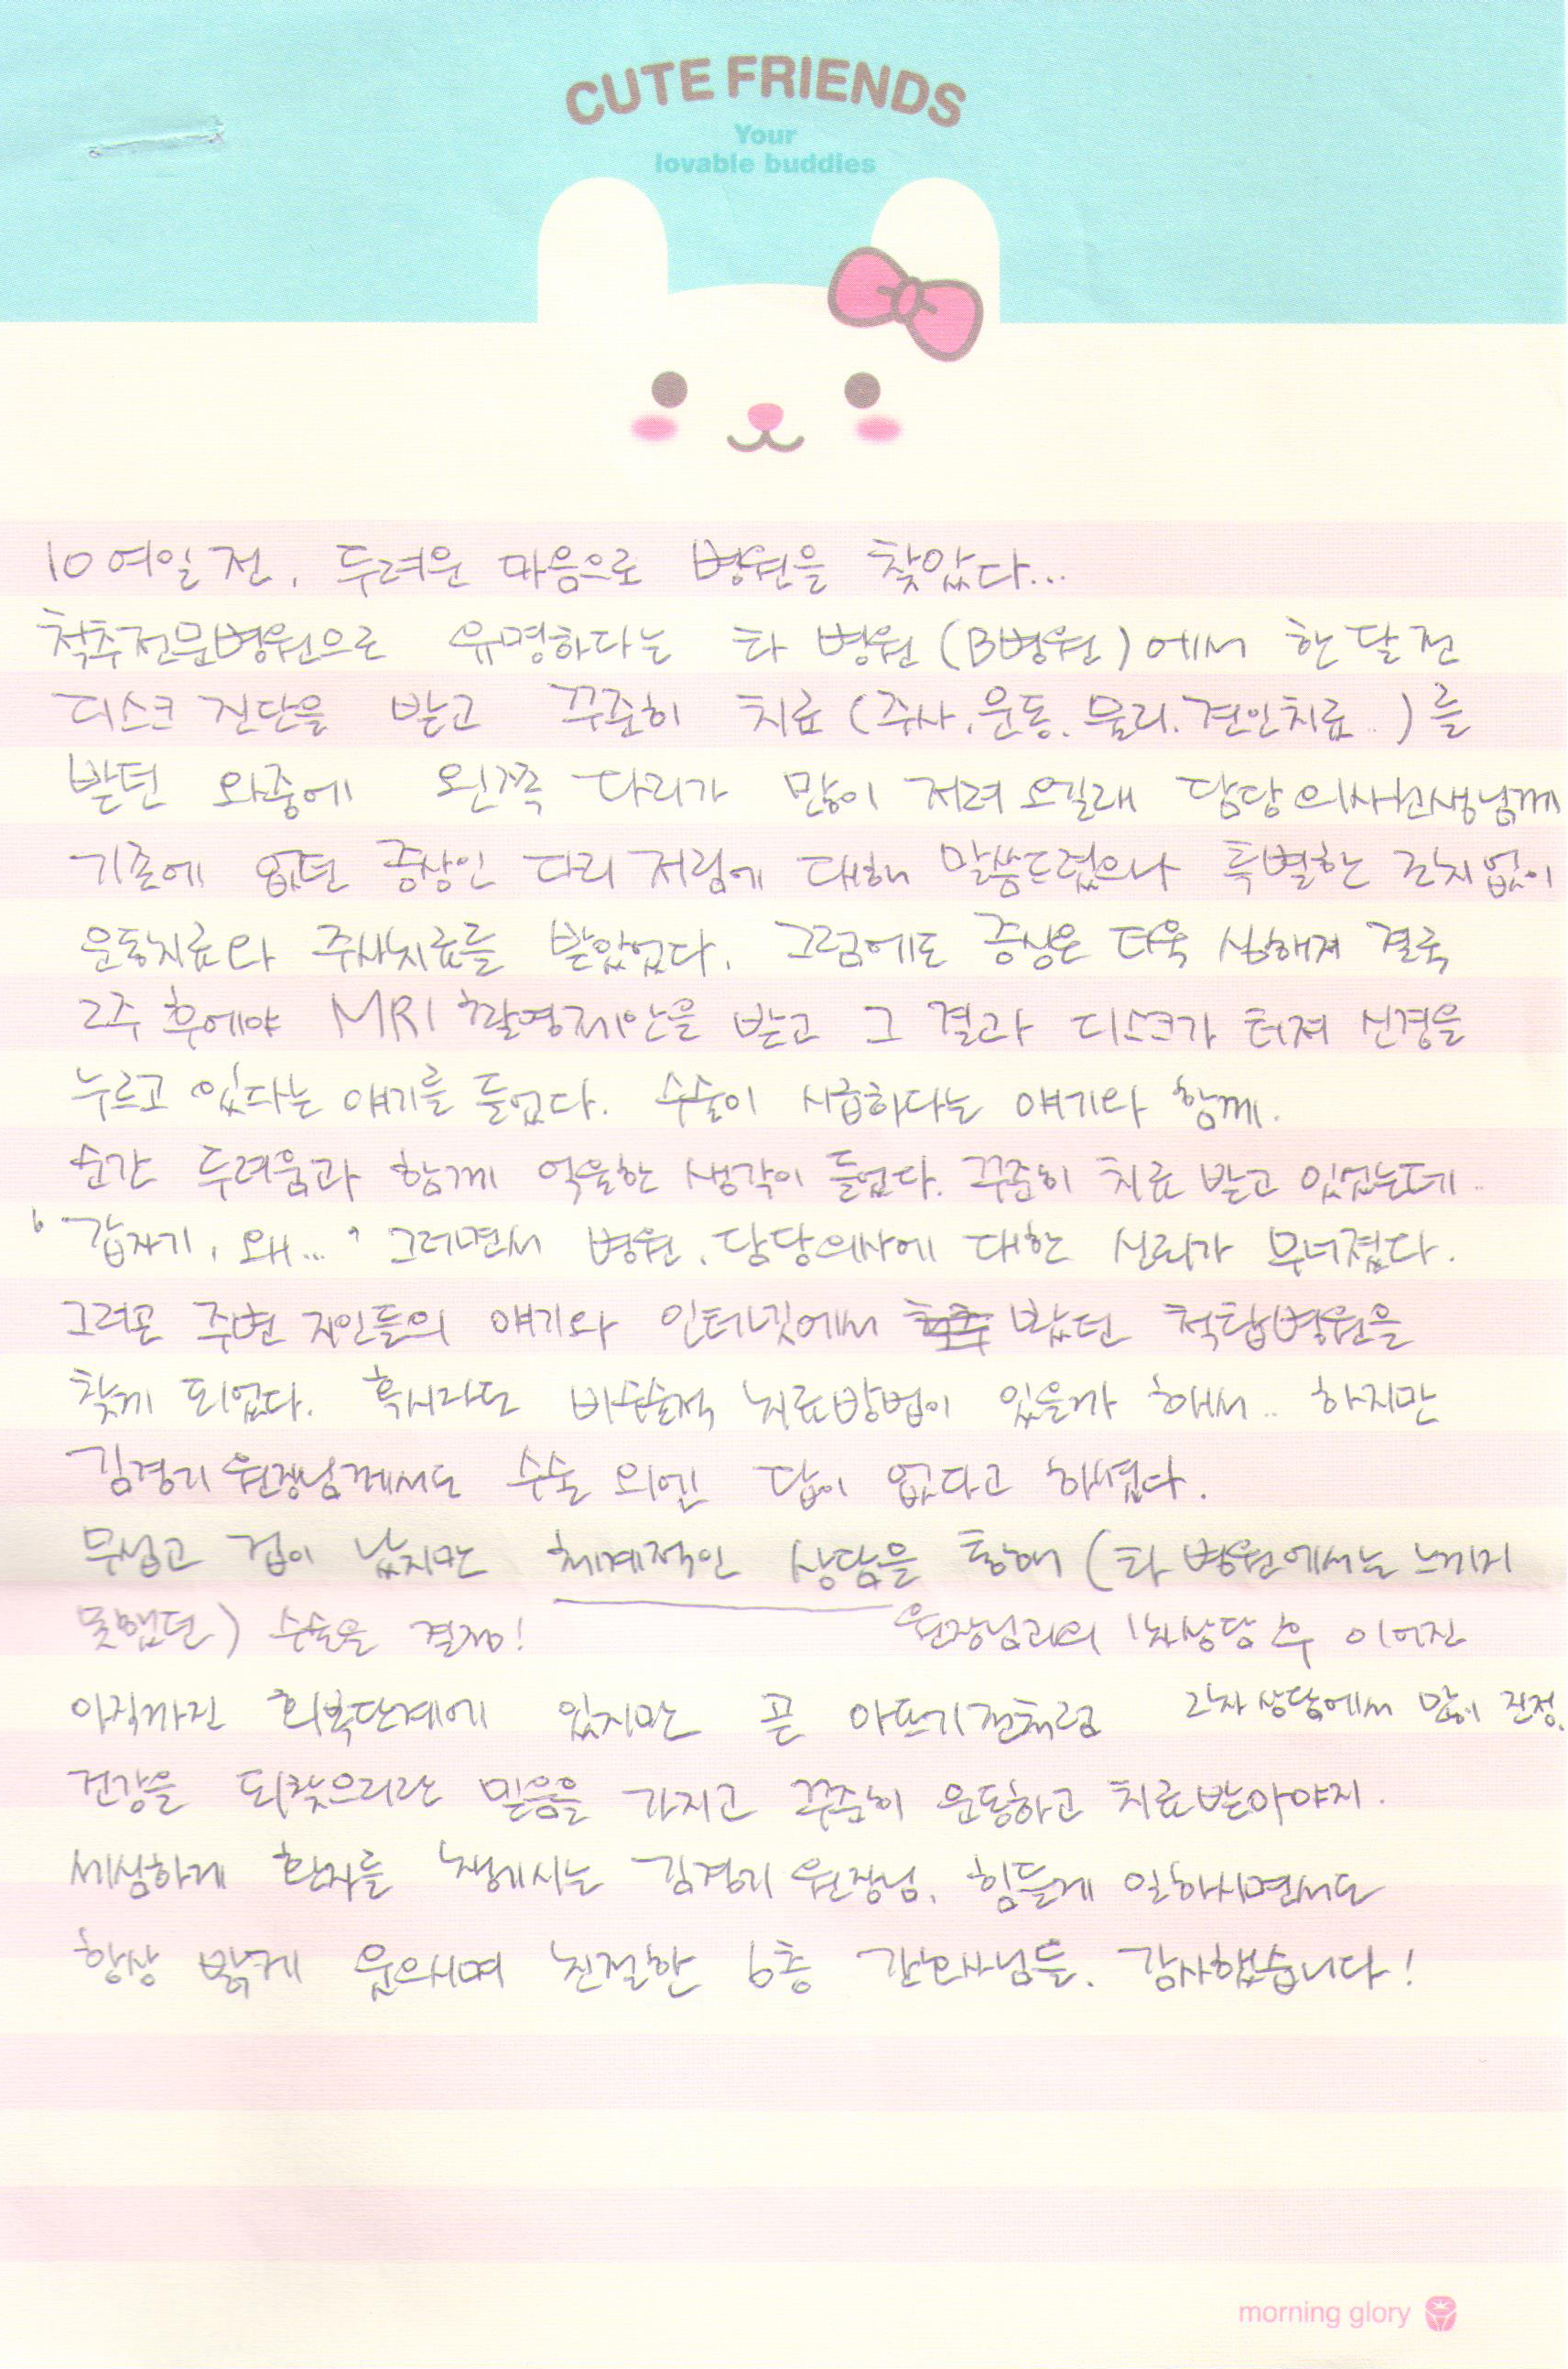 CUTE FRIENDS
Your
lovable buddies
10여일 전, 두려운 마음으로 병원을 찾았다...
척추전문병원으로 유명하다는 타 병원 (B병원)에서 한달 전
디스크 진단을 받고 꾸준히 치료 (주사.운동.물리.견인치료..)를
받던 와중에 왼쪽 다리가 많이 저려 오길래 담당의사선생님께
기존에 없던 증상인 다리 저림에 대해 말씀드렸으나 특별한 조치없이
운동치료와 주사치료를 받았었다. 그럼에도 증상은 더욱 심해져 결국
2주 후에야 MRI 촬영제안을 받고 그 결과 디스크가 터져 신경을
누르고 있다는 얘기를 들었다. 수술이 시급하다는 얘기와 함께.
순간 두려움과 함께 억울한 생각이 들었다. 꾸준히 치료 받고 있었는데..
'갑자기, 왜...' 그러면서 병원, 담당의사에 대한 신뢰가 무너졌다.
그러곤 주변 지인들의 얘기와 인터넷에서 봤던 척탑병원을
찾게 되었다. 혹시라도 비수술적 치료방법이 있을까 해서.. 하지만
김경기 원장님께서도 수술 외엔 답이 없다고 하셨다.
무섭고 겁이 났지만 체계적인 상담을 통해 (타 병원에서는 느끼지
못했던) 수술을 결정!
원장님과의 1차상담 후 이어진
2차 상담에서 많이 진정.
아직까진 회복단계에 있지만 곧 아프기전처럼
건강을 되찾으리란 믿음을 가지고 꾸준히 운동하고 치료받아야지.
세심하게 환자를 챙기시는 김경기 원장님, 힘들게 일하시면서도
항상 밝게 웃으시며 친절한 6층 간호사님들. 감사했습니다!
morning glory